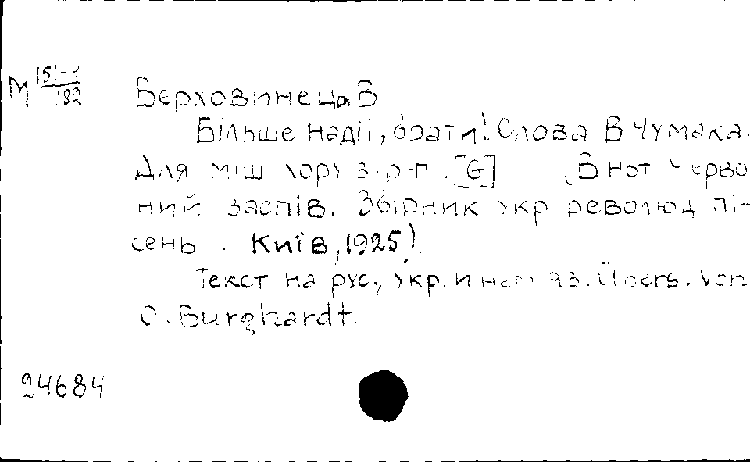 М 151-1/182
Верховинець, В
Більше надії, брати! Слова В Чумака.
Для міш хору з ф-п. [G] (В нот Черво
ний заспів. Збірник укр революц пі-
сень. Київ, 1925).
Текст на рус., укр. и нем яз. Übers. von
O. Burghardt.
24684